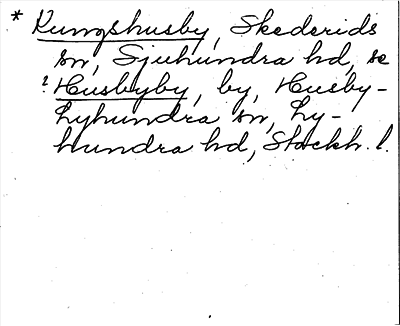 * Kungshusby, Skederids
sn, Sjuhundra hd, se
? Husbyby, by, Husby-
Lyhundra sn, Ly-
hundra hd, Stockh. l.